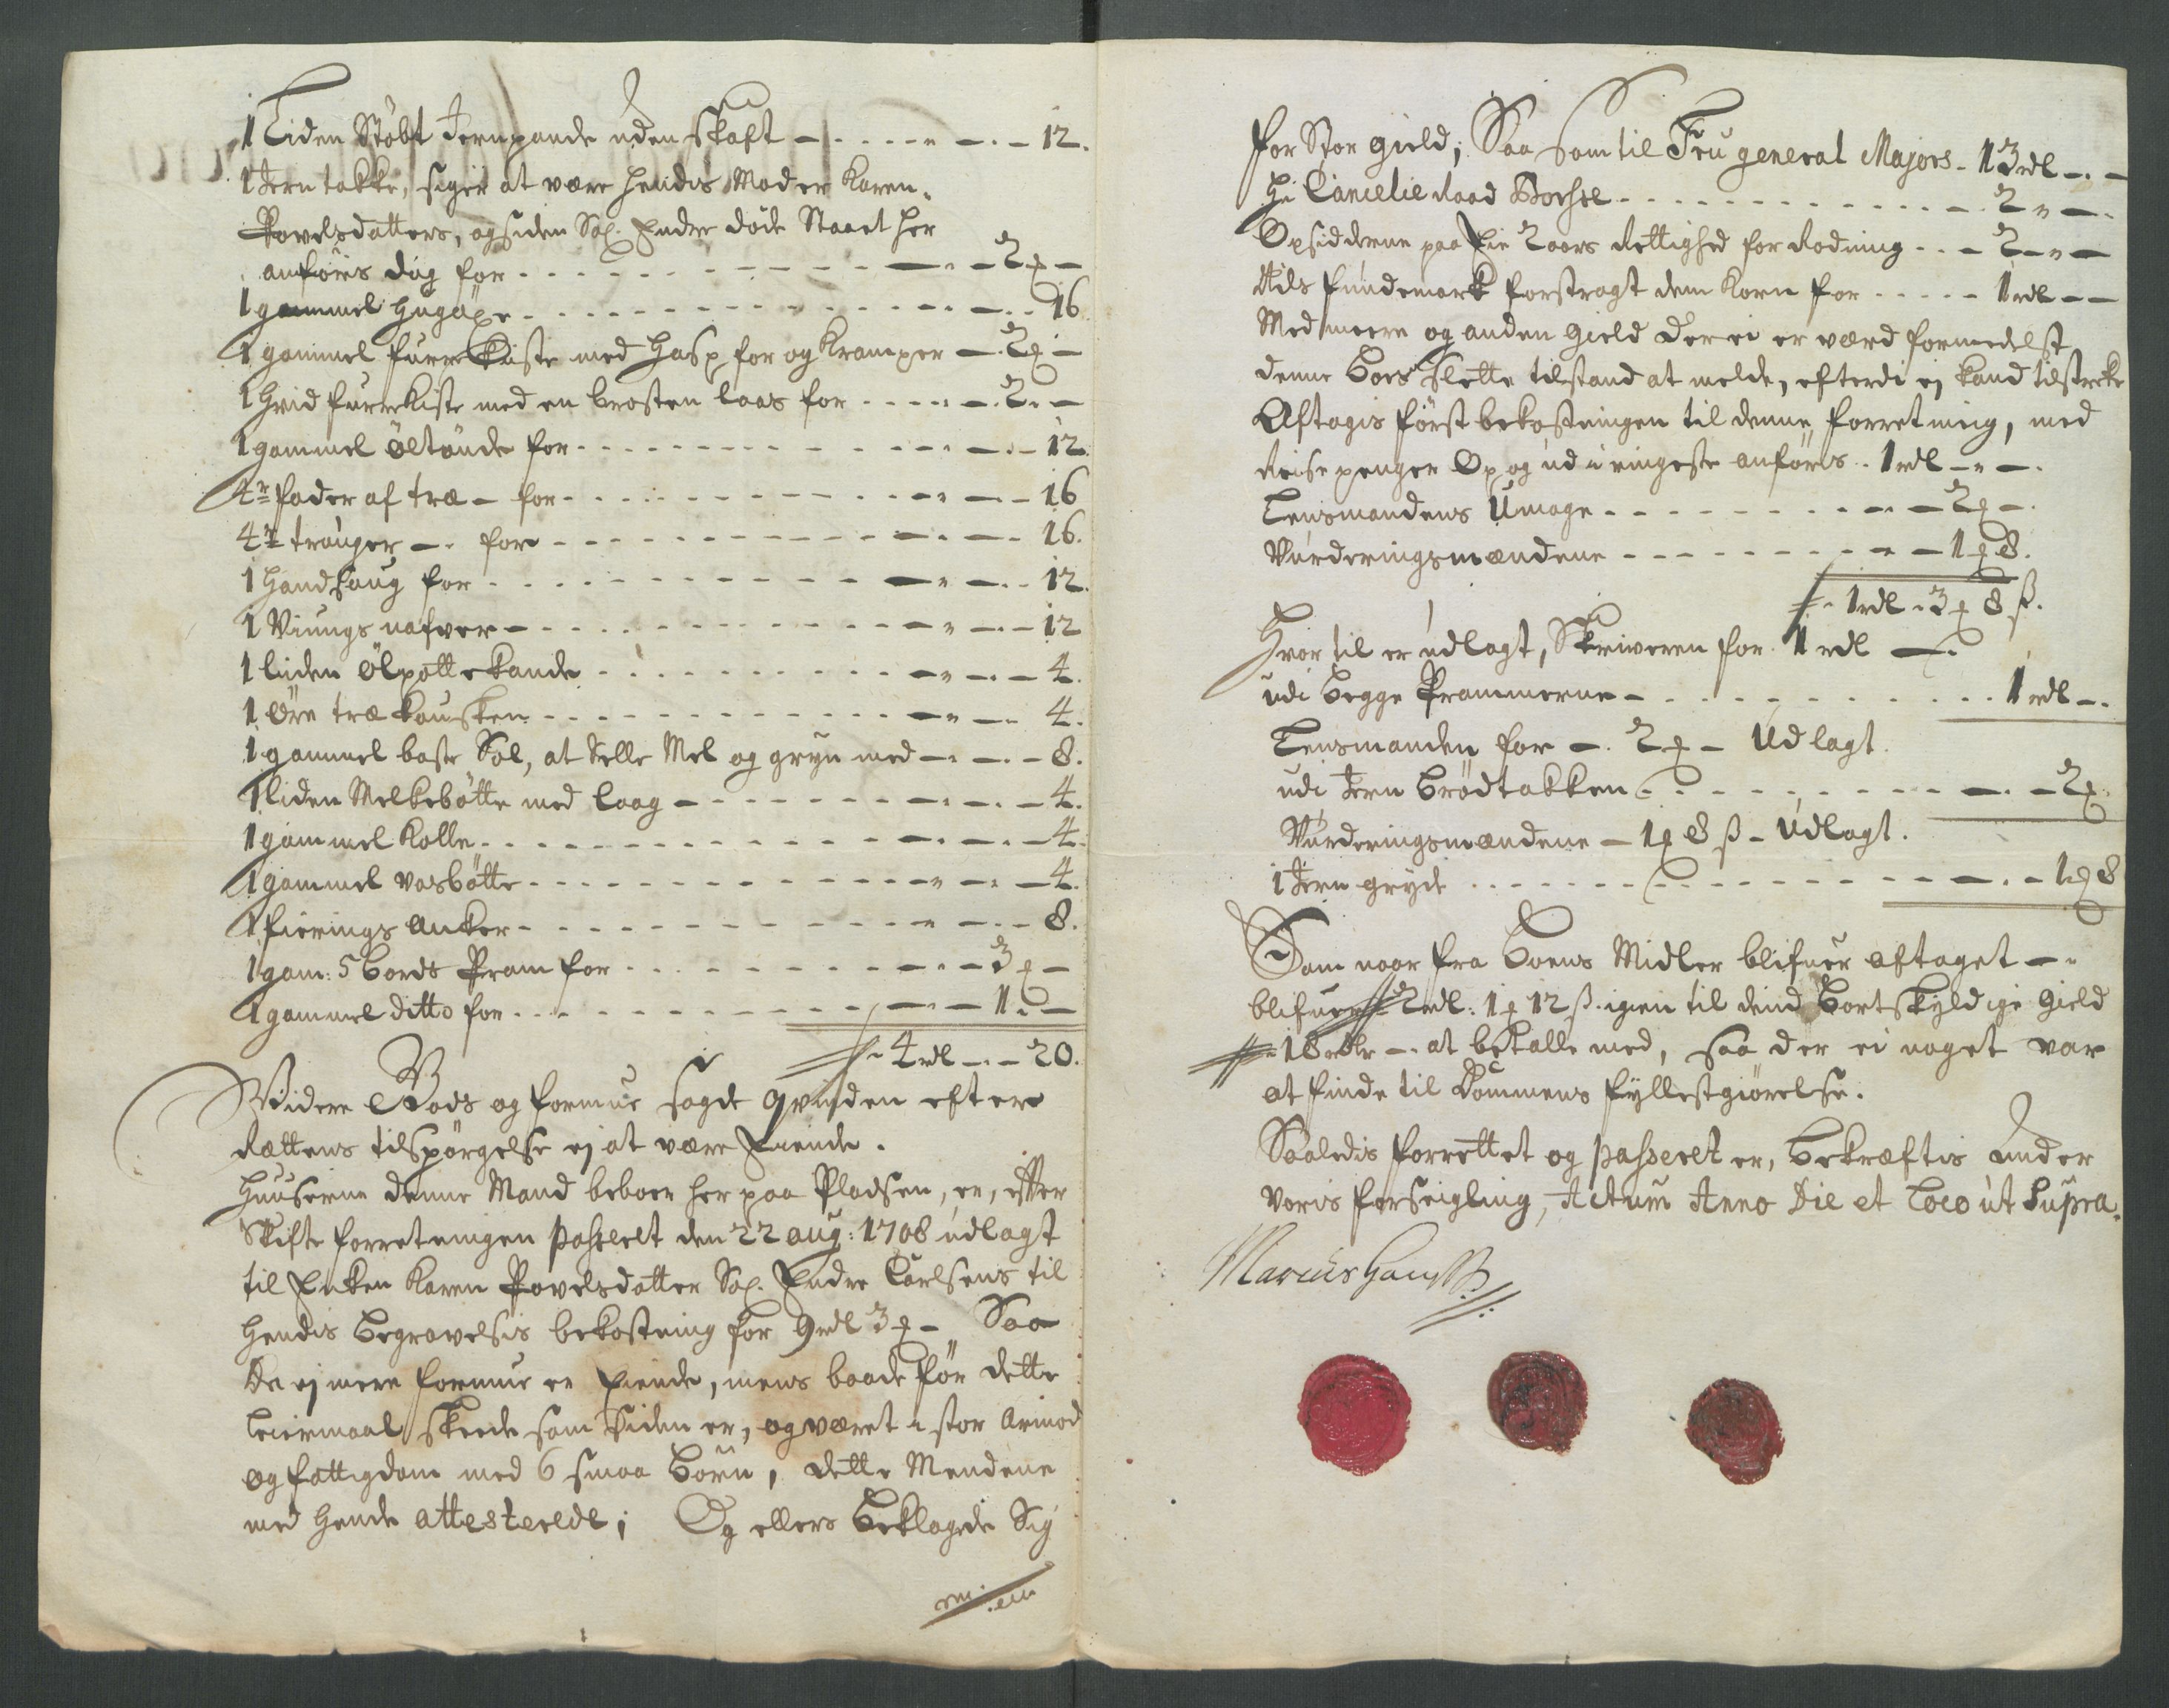 1 Liden Støbt Jernpande uden skaft - - - 12.
1 Jern takke, siger at være hendis Moder Karen
Povelsdatters, og siden Sal. Endre døde Staaet her
anføris dog for - - - 2 ₰ -
1 gammel hugøxe - - - 16
1 gammel furre Kiste med Hasp for og Kramper - 2 ₰ -
1 Hvid furrekiste med en brosten laas for - - - 2 -
1 gammel øltønde for - - - 12.
4re fader af træ - for - - - 16
4re trouger - for - - - 16.
1 Handsaug for - - - 12.
1 Viungs nafver - - - 12
1 liden ølpotte kande - - - 4.
1 øre træ kousken - - - 4.
1 gammel baste Sol, at selle Mel og gryn med - - - 8.
1 liden Melkebøtte med laag - - - 4.
1 gammel Kolle - - - 4.
1 gammel vasbøtte - - - 4.
1 fierings Anker - - - 8.
1 gam: 5 bords Pram for - - - 3 ₰ -
1 gammel ditto for - - - 1 -
4 rdl - - 20.
Widere Gods og formue sagde qvinden efter
Rættens tilspørgelse ej at være Eiende.
Huuserne denne Mand beboer her paa Pladsen, er, efter
Skifte forretningen passeret den 22 aug: 1708 udlagt
til Enken Karen Povelsdatter Sal. Endre Carlsens til
hendis begravelsis bekostning for 9 rdl 3 ₰ - Saa
De ej mere formue er Eiende, mens baade før dette
Leiermaal skeede som siden er, og været i stor Armod
og fattigdom med 6 smaa børn, dette Mendene
med hende attesterede; Og ellers beklagede Sig
for Stor gield; Saa som til Fru general Majors - 13 rdl - -
Hr Cancelie Raad - - - 2 - -
Opsidderne paa Eie 2 aars Rettighed for Rodning - - - 2 - -
Nils fundemark forstragt dem Korn for - - - 1 rdl - -
Med meere og anden gield Der ei er værd formedelst
denne boes slette tilstand at melde, efterdi ej kand tilstrecke
Aftagis først bekostningen til denne forretning, med
Reise penger Op og ud i ringeste anføris - 1 rdl - -
Lensmandens Umage - - - 2 ₰ -
Vurderingsmændene - - - 1 ₰ 8.
1 rdl - 3 ₰ 8 ß.
Hvor til er udlagt, Skriveren for 1 rdl -
udi begge Prammerne - - - 1 rdl -
Lensmanden for - 2 ₰ - Udlagt.
udi Jern Brødtakken - - - 2 ₰
Vurderingsmændene - 1 ₰ 8 ß - Udlagt.
1 Jern gryde - - - 1 ₰ 8
Som naar fra boens Midler blifuer aftaget -
blifuer 2 rdl: 1 ₰ 12 ß igien til deend bortskyldige Gield
18 rdlr - at betalle med, saa der ei noget var
at finde til Dommens fyllestgiørelse.
Saaledis forrettet og passeret er, bekræftis under
voris forseigling, Actum Anno Die et Loco ut Supra.
Marcus